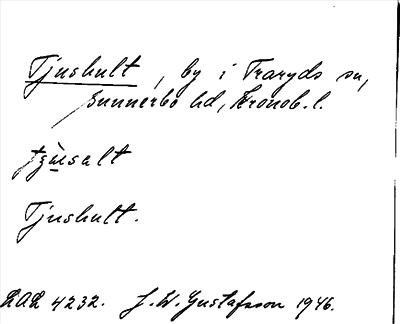 Tjushult, by i Traryds sn,
Sunnerbo hd, Kronob. l.
Tjushult.
LAL 4232. J. W. Gustafsson 1946.